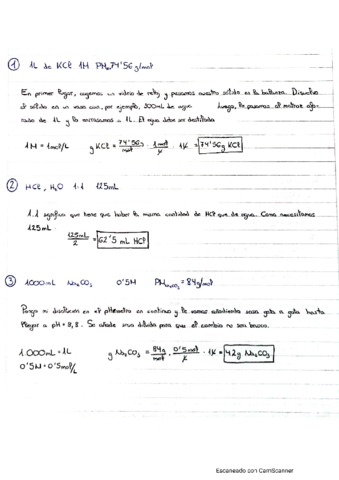 ① 1L de KCl 1M PM=74'56g/mol
En primer lugar, cogemos un vidrio de reloj y pesamos nuestro sólido en la balanza. Disuelvo
el sólido en un vaso con, por ejemplo, 300mL de agua luego, lo pasamos al matraz afo-
rado de 1L y lo enrasamos a 1L. El agua debe ser destilada
1M = 1mol/L g KCl = 74'56g/mol · 1mol/L · 1L = 74'56g KCl
② HCl, H₂O 1:1 125mL
1:1 significa que tiene que haber la misma cantidad de HCl que de agua. Como necesitamos
125mL
125mL/2 = 62'5 mL HCl
③ 1000mL Na₂CO₃ 0'5M PM Na₂CO₃ = 84g/mol
Pongo mi disolución en el pHmetro en continuo y le vamos añadiendo sosa gota a gota hasta
llegar a pH = 8,8. Se añade sosa diluida para que el cambio no sea brusco.
1.000mL = 1L
0'5M = 0'5mol/L
g Na₂CO₃ = 84g/mol · 0'5mol/L · 1L = 42g Na₂CO₃
Escaneado con CamScanner